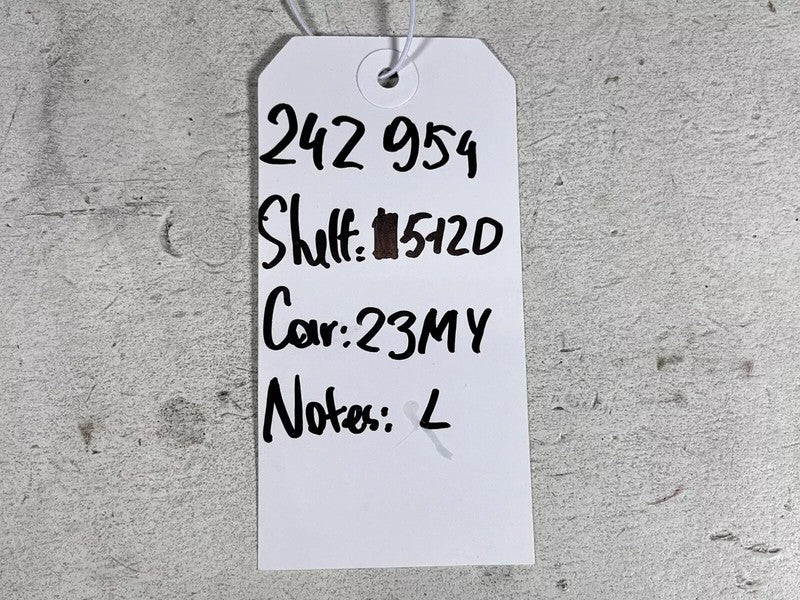 242 954
Shelf: 512D
Car: 23MY
Notes: L